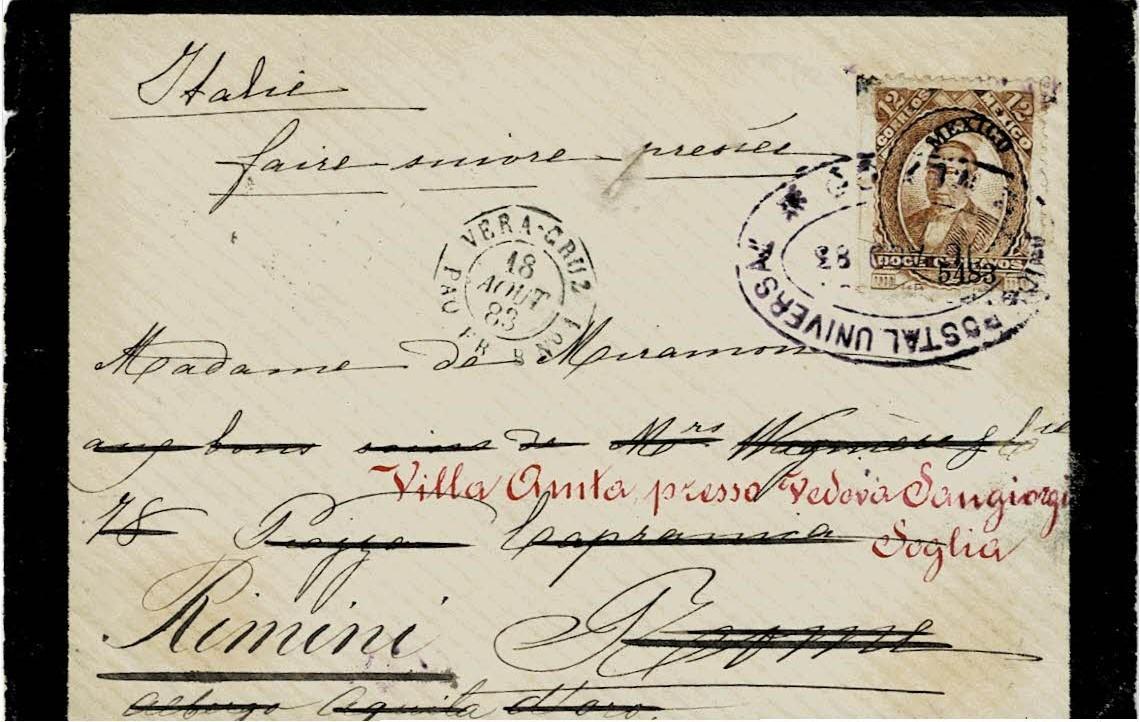 Italie
faire suivre pressée
12 12
CORREOS MEXICO
MEXICO
DOCE CENTAVOS
5483
POSTAL UNIVERSAL
VERA-CRUZ
18
AOUT
83
PAQ. FR. B No 1
Madame de Miramon
aux bons soins de Mrs Wagnière & Cie
Villa Anita presso Vedova Sangiorgi
78 Piazza Capranica
Soglia
Rimini Rome
Albergo Aquila d'oro.